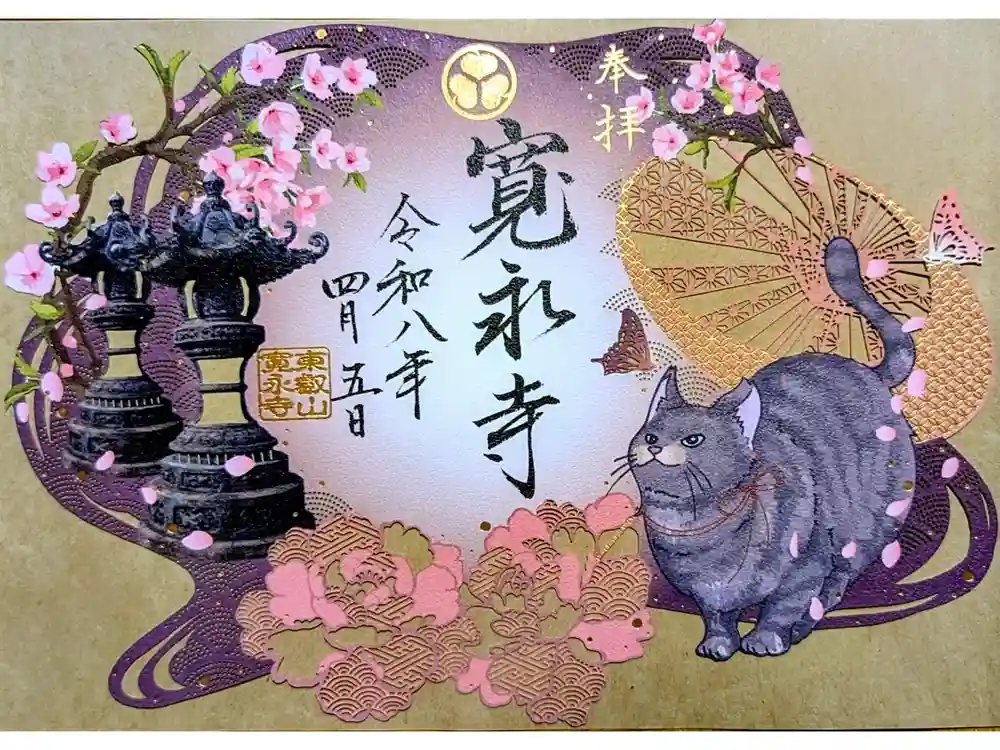 奉拝
寛永寺
令和八年
四月五日
東叡山
寛永寺